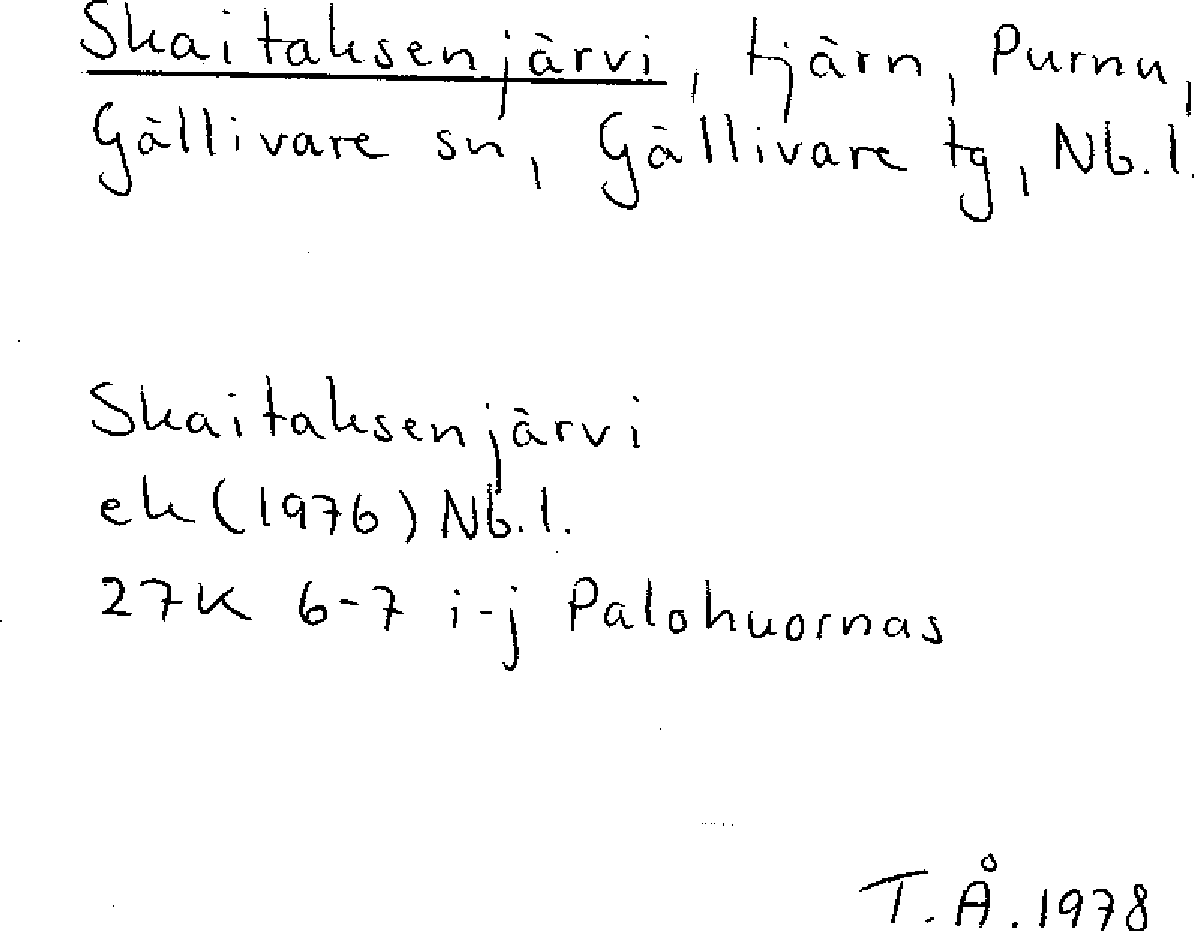 Skaitaksenjärvi, tjärn, Purnu,
Gällivare sn, Gällivare tg, Nb.l.
Skaitaksenjärvi
ek (1976) Nb.l.
27K 6-7 i-j Palohuornas
T.Å. 1978